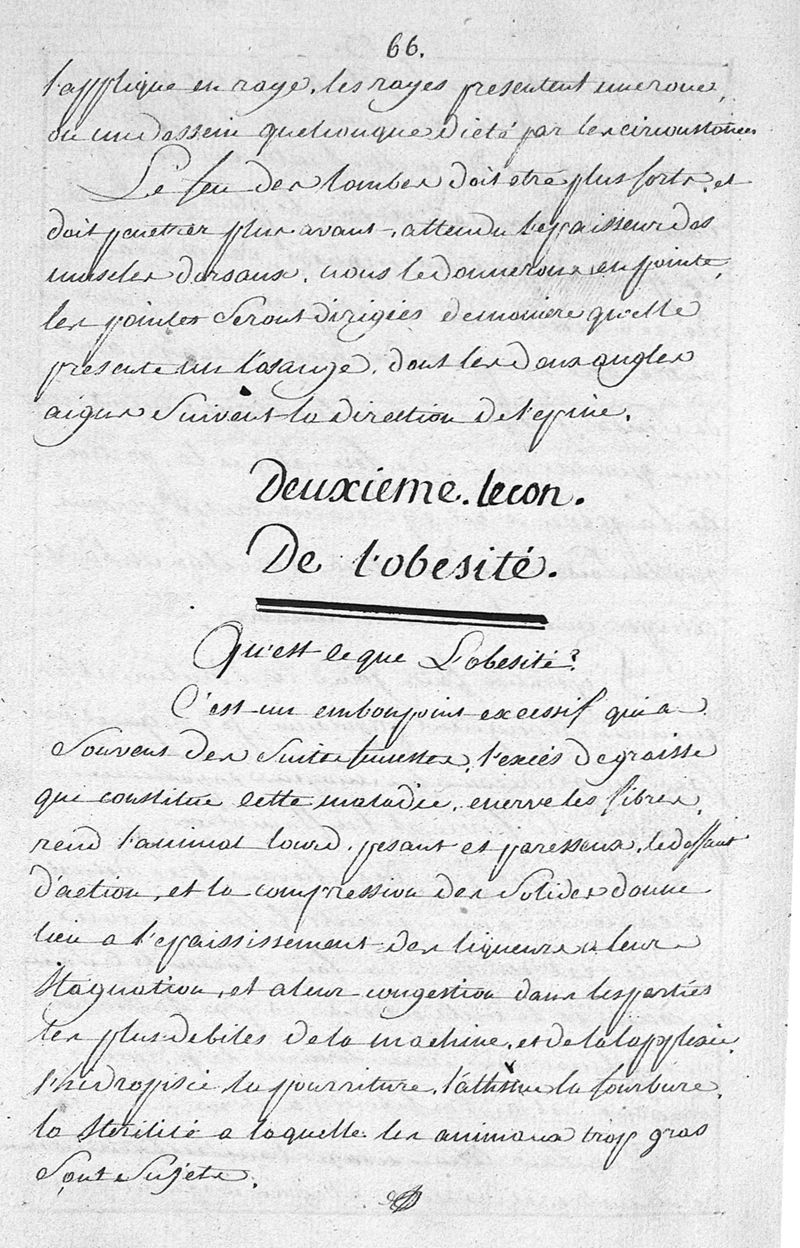 66.
l'applique en raye, les rayes presentent une roue,
ou un dessein quelconque dicté par les circonstances
Le feu des lombes doit etre plus forts, et
doit penetrer plus avant, attendu l'epaisseur des
muscles dorsaux, nous le donnerons en pointe,
les pointes seront dirigées de maniere qu'elle
presente un losange, dont les deux angles
aigus suivent la direction de l'epine.
Deuxieme. lecon.
De l'obesité.
Qu'est ce que L'obesité?
C'est un embonpoint excessif qui a
Souvent des suites funestes, l'excés de graisse
que constitue cette maladie, enerve les fibres,
rend l'animal lourd, pesant et paresseux, le deffaut
d'action, et la compression des solides donne
lieu a l'epaississement des liqueurs a leur
Stagnation, et a leur congestion dans les parties
les plus debiles de la machine, et de la l'applexie,
l'hidropisie la pourriture, l'athsme la fourbure,
la sterilité a laquelle les animaux trop gras
Sont Sujets.